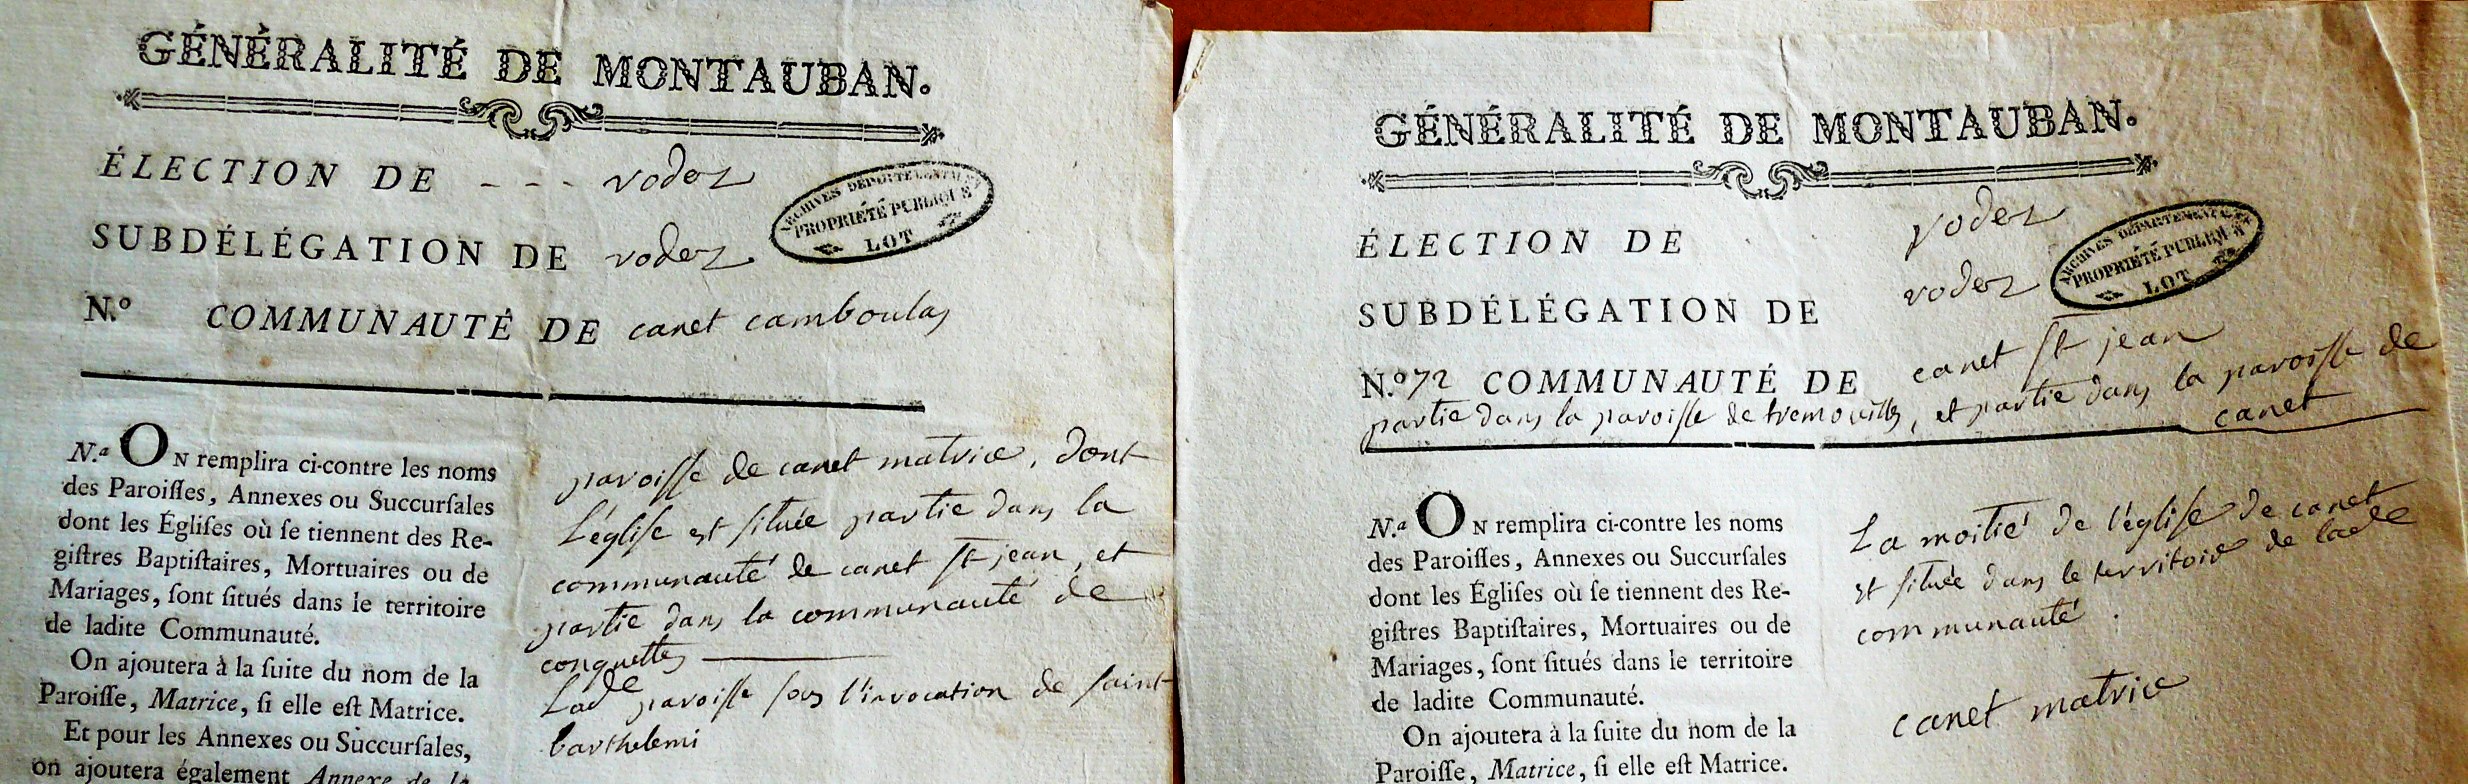 GÉNÉRALITÉ DE MONTAUBAN.
ÉLECTION DE - - - rodez
SUBDÉLÉGATION DE rodez
ARCHIVES DÉPARTEMENTALES
PROPRIÉTÉ PUBLIQUE
LOT
N.º COMMUNAUTÉ DE canet camboulas
N.ª ON remplira ci-contre les noms
des Paroiſſes, Annexes ou Succurſales
dont les Égliſes où ſe tiennent des Re-
giſtres Baptiſtaires, Mortuaires ou de
Mariages, ſont ſitués dans le territoire
de ladite Communauté.
On ajoutera à la ſuite du nom de la
Paroiſſe, Matrice, ſi elle eſt Matrice.
Et pour les Annexes ou Succurſales,
on ajoutera également Annexe de la
paroiſſe de canet matrice, dont
L'égliſe est ſituée partie dans la
communauté de canet St jean, et
partie dans la communauté de
conquettes
Lade paroiſſe sous l'invocation de ſaint
barthelemi
GÉNÉRALITÉ DE MONTAUBAN.
ÉLECTION DE rodez
SUBDÉLÉGATION DE rodez
ARCHIVES DÉPARTEMENTALES
PROPRIÉTÉ PUBLIQUE
LOT
N.º 72 COMMUNAUTÉ DE canet St jean
partie dans la paroiſſe de tremouilles, et partie dans la paroiſſe de
canet
N.ª ON remplira ci-contre les noms
des Paroiſſes, Annexes ou Succurſales
dont les Égliſes où ſe tiennent des Re-
giſtres Baptiſtaires, Mortuaires ou de
Mariages, ſont ſitués dans le territoire
de ladite Communauté.
On ajoutera à la ſuite du nom de la
Paroiſſe, Matrice, ſi elle eſt Matrice.
La moitié de l'égliſe de canet
est ſituée dans le territoire de lade
communauté.
canet matrice